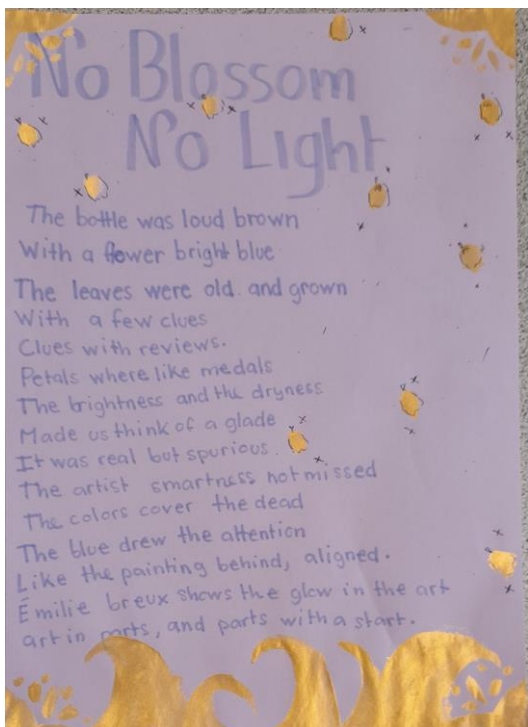 No Blossom
No Light
The bottle was loud brown
With a flower bright blue
The leaves were old and grown
With a few clues
Clues with reviews.
Petals where like medals
The brightness and the dryness
Made us think of a glade
It was real but spurious.
The artist smartness not missed
The colors cover the dead
The blue drew the attention
Like the painting behind, aligned.
Émilie breux shows the glow in the art
art in parts, and parts with a start.